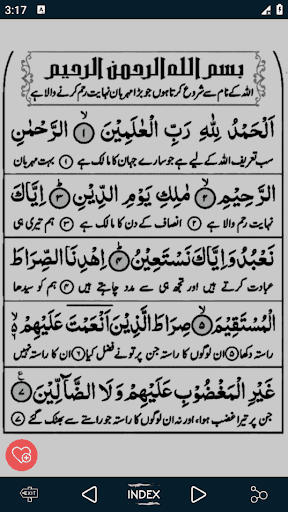 3:17
بسم الله الرحمن الرحيم
اللہ کے نام سے شروع کرتا ہوں جو بڑا مہربان نہایت رحم کرنے والا ہے
اَلْحَمْدُ لِلّٰهِ رَبِّ الْعٰلَمِيْنَ ۙ﴿۱﴾ الرَّحْمٰنِ
سب تعریف اللہ کے لیے ہے جو سارے جہان کا مالک ہے ۱ بہت مہربان
الرَّحِيْمِ ۙ﴿۲﴾ مٰلِكِ يَوْمِ الدِّيْنِ ﴿۳﴾ اِيَّاكَ
نہایت رحم والا ہے ۲ انصاف کے دن کا مالک ہے ۳ ہم تیری ہی
نَعْبُدُ وَاِيَّاكَ نَسْتَعِيْنُ ﴿۴﴾ اِهْدِنَا الصِّرَاطَ
عبادت کرتے ہیں اور تجھ ہی سے مدد چاہتے ہیں ۴ ہم کو سیدھا
الْمُسْتَقِيْمَ ۙ﴿۵﴾ صِرَاطَ الَّذِيْنَ اَنْعَمْتَ عَلَيْهِمْ ۙ۬﴿۶﴾
راستہ دکھا ۵ ان لوگوں کا راستہ جن پر تو نے فضل کیا ۶ ان کا راستہ نہیں
غَيْرِ الْمَغْضُوْبِ عَلَيْهِمْ وَلَا الضَّآلِّيْنَ ﴿۷﴾
جن پر تیرا غضب ہوا، اور نہ ان لوگوں کا راستہ جو راستے سے بھٹک گئے ۷
EXIT
INDEX